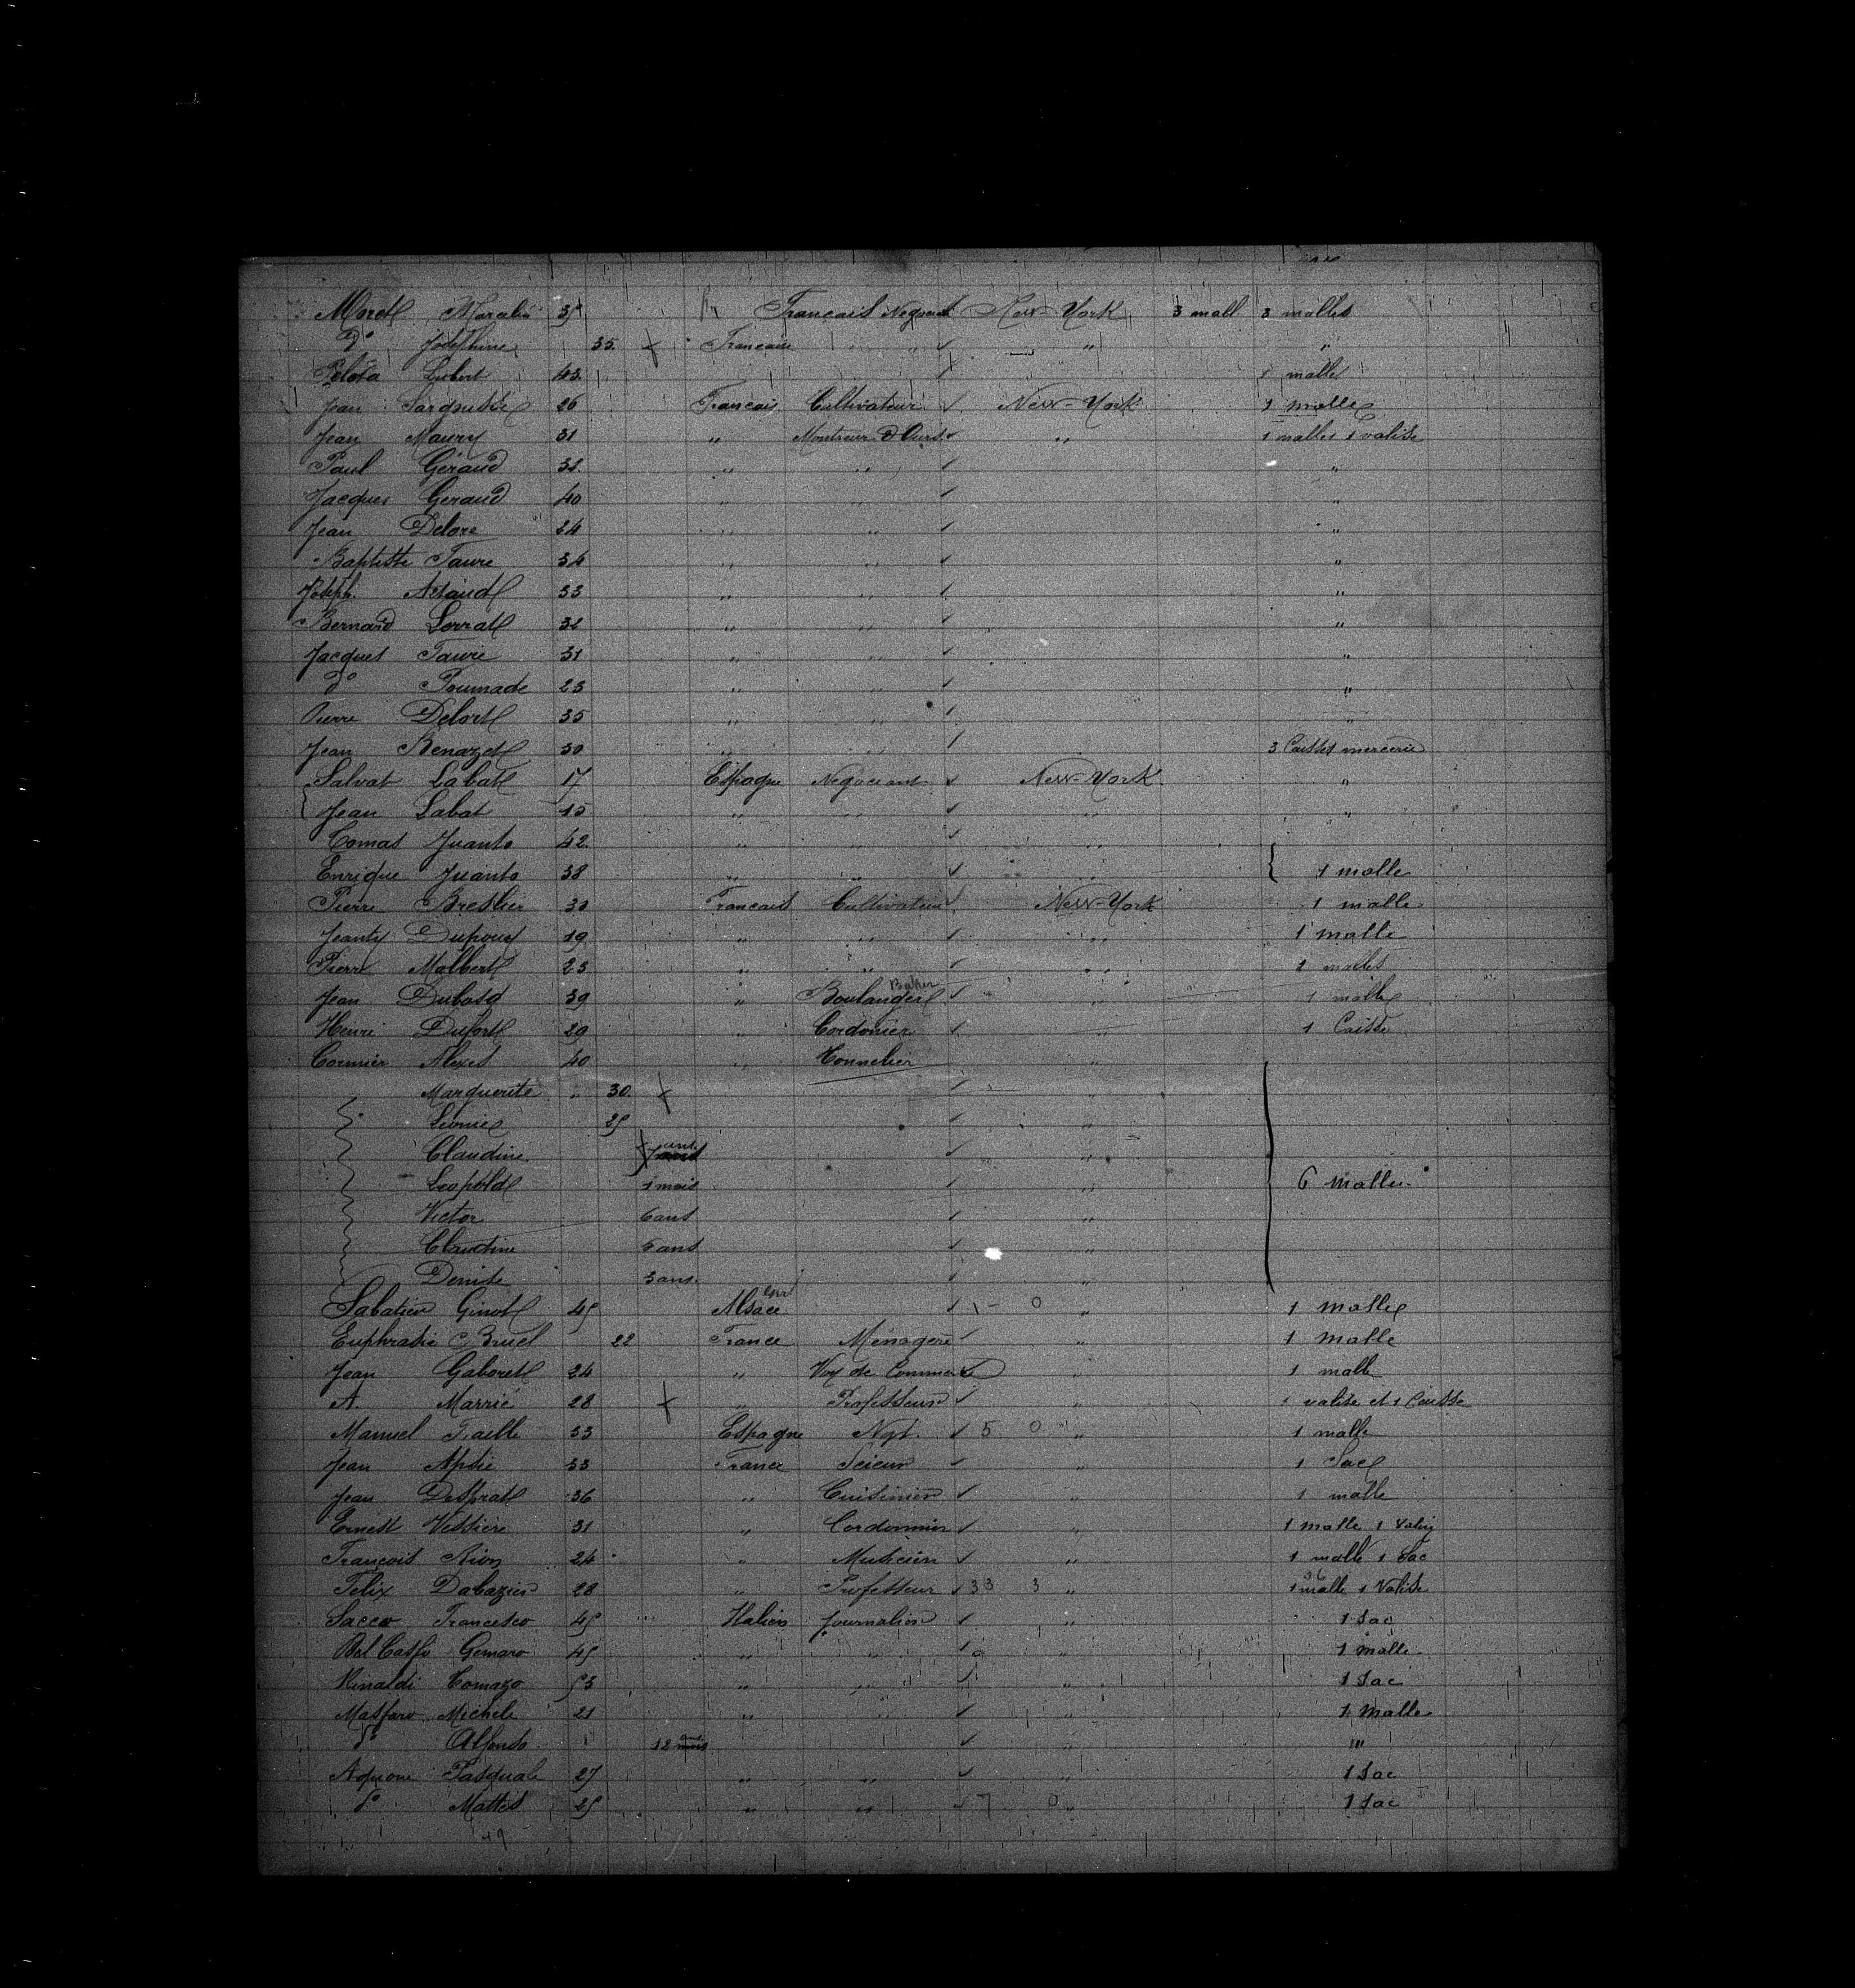 Morel Marcelin 35 Francais Negociant New-York 3 mall 3 malles
do Josephine 35 Francaise " " "
Lubert 43 1 malle
Jean 26 Francais Cultivateur New-York 1 malle
Jean Maury 31 " Montreur d'Ours " 1 malles 1 valise
Paul Géraud 32 " " "
Jacques Geraud 40 " " "
Jean Delore 24 " " "
Baptiste Faure 34 " " "
Joseph Artaud 33 " " "
Bernard Serrat 32 " " "
Jacques Faure 31 " " "
do Poumade 23 " " "
Pierre Delort 35 " " "
Jean Benazet 30 " " 3 Caisses mercerie
Salvat Labat 17 Espagne Negociant New-York "
Jean Labat 15 " " "
Comas Juanto 42 " " "
Enrique Juanto 38 " " " 1 malle
Pierre Breshier 30 Francais Cultivateur New-York 1 malle
Jeanty Dupouy 19 " " " 1 malle
Pierre Malbert 23 " " " 1 malles
Jean Dubosq 39 " Boulanger Baker " 1 malle
Henri Dufort 29 " Cordonier " 1 Caisse
Cormier Alexis 40 " Tonnelier "
Marguerite " 30 "
Leonie 25 "
Claudine 7 ans "
Leopold 1 mois " 6 malles
Victor 6 ans "
Claudine 5 ans "
Denise 3 ans "
Sabatier Ginot 45 Alsace 1 - 0 " 1 malle
Euphrasie Bruel 22 France Ménagere " 1 malle
Jean Gaboret 24 " Voy de Commerce " 1 malle
A. Marrié 28 " Professeur " 1 valise et 1 Caisse
Manuel 33 Espagne Ngt. 5 0 " 1 malle
Jean 33 France Scieur " 1 Sac
Jean Desprat 36 " Cuisinier " 1 malle
Ernest Vessiere 31 " Cordonnier " 1 malle 1 valise
Francois Rion 24 " Musicien " 1 malle 1 Sac
Felix Dabazies 28 " Professeur 33 3 " 36 1 malle 1 Valise
Sacco Francesco 45 Italien Journalier " 1 Sac
Gennaro 45 " " " 1 malle
Rinaldi Tomazo 53 " " 1 Sac
Massaro Michele 21 " " 1 Malle
do Alfonso 12 ans " "
Pasquale 27 " " " 1 Sac
do Matteo 25 " " 7 0 " 1 Sac
49